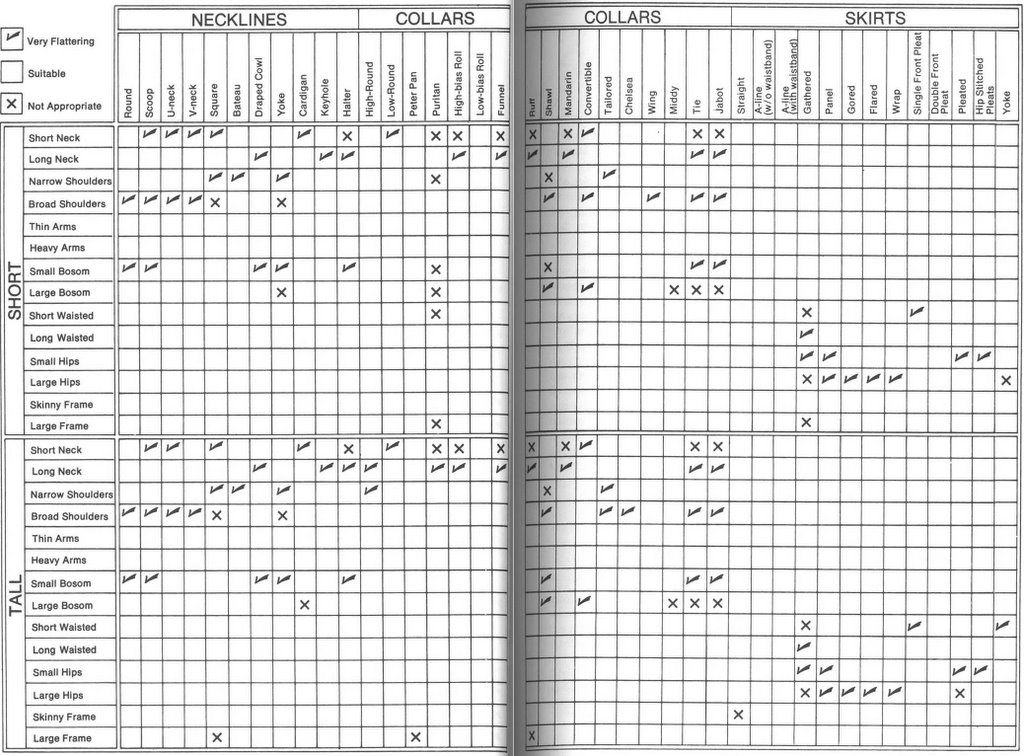 NECKLINES COLLARS COLLARS SKIRTS
Very Flattering
Suitable
Not Appropriate
Round
Scoop
U-neck
V-neck
Square
Bateau
Draped Cowl
Yoke
Cardigan
Keyhole
Halter
High-Round
Low-Round
Peter Pan
Puritan
High-bias Roll
Low-bias Roll
Funnel
Ruff
Shawl
Mandarin
Convertible
Tailored
Chelsea
Wing
Middy
Tie
Jabot
Straight
A-line
(w/o waistband)
A-line
(with waistband)
Gathered
Panel
Gored
Flared
Wrap
Single Front Pleat
Double Front
Pleat
Pleated
Hip Stitched
Pleats
Yoke
SHORT
Short Neck
Long Neck
Narrow Shoulders
Broad Shoulders
Thin Arms
Heavy Arms
Small Bosom
Large Bosom
Short Waisted
Long Waisted
Small Hips
Large Hips
Skinny Frame
Large Frame
TALL
Short Neck
Long Neck
Narrow Shoulders
Broad Shoulders
Thin Arms
Heavy Arms
Small Bosom
Large Bosom
Short Waisted
Long Waisted
Small Hips
Large Hips
Skinny Frame
Large Frame